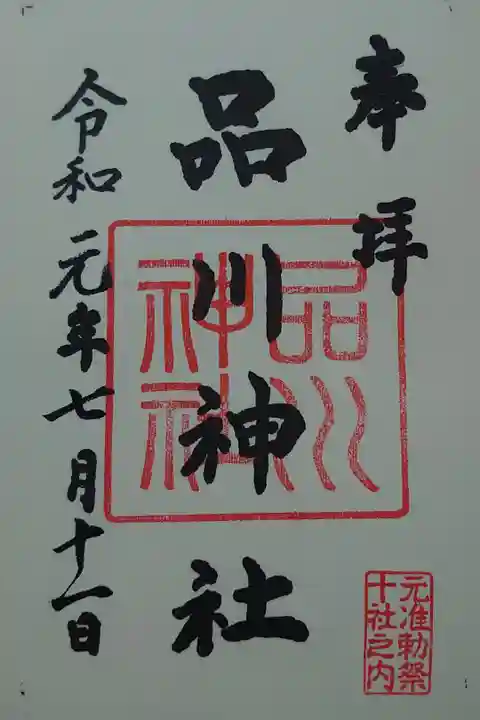 奉拝
品川神社
令和元年七月十一日
品川
神社
元准勅祭
十社之内